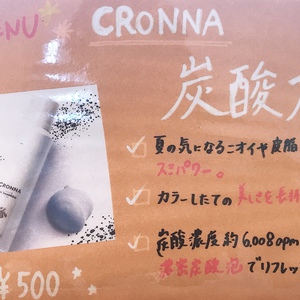 MENU
CRONNA
炭酸
夏の気になるニオイや皮脂
スミパワー。
カラーしたての美しさを長持
炭酸濃度約6,000ppm
濃密炭酸泡でリフレッ
CRONNA
¥500